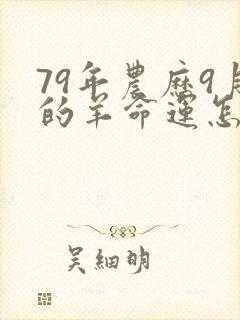 79年農历9月
的羊命運怎
吴細明